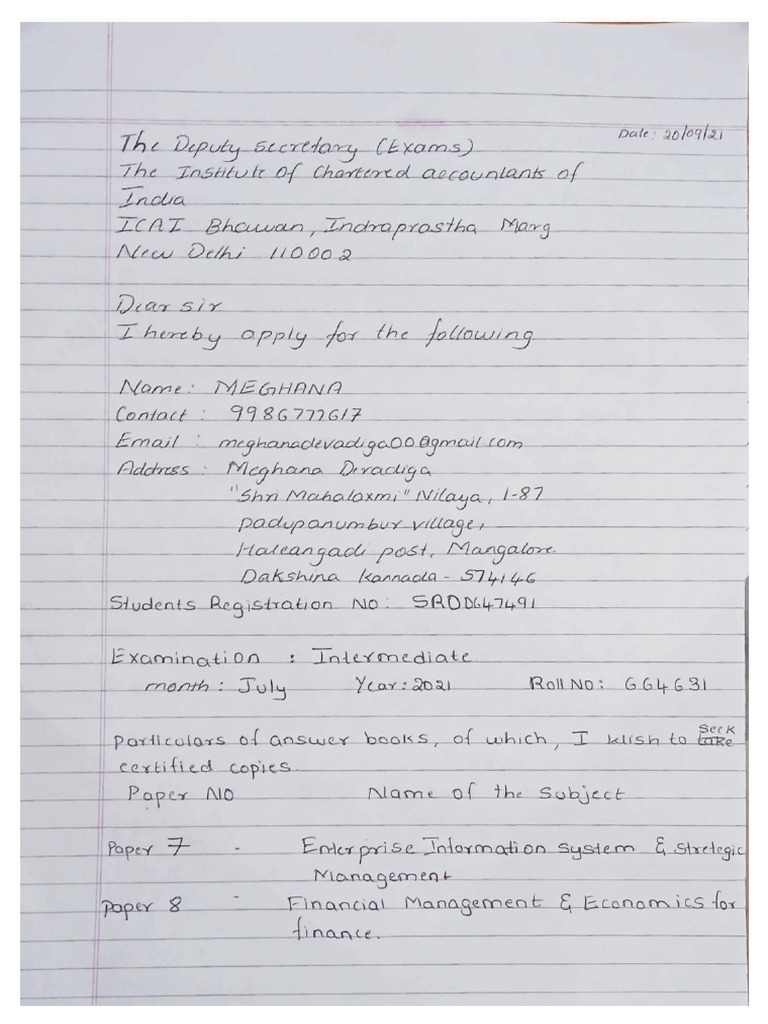 Date: 20/09/21
The Deputy Secretary (Exams)
The Institute Of Chartered accountants of
India
ICAI Bhawan, Indraprastha Marg
New Delhi 110002
Dear sir
I hereby apply for the following
Name: MEGHANA
Contact : 9986777617
Email : meghanadevadiga00@gmail.com
Address : Meghana Devadiga
"Shri Mahalaxmi" Nilaya, 1-87
padupanumbur village,
Haleangadi post, Mangalore.
Dakshina Kannada - 574146
Students Registration NO: SRO0647491
Examination : Intermediate
month: July Year: 2021 Roll NO: 664631
particulars of answer books, of which, I wish to take seek
certified copies.
Paper NO Name of the Subject
Paper 7 - Enterprise Information system & Stretegic
Management
Paper 8 - Financial Management & Economics for
finance.